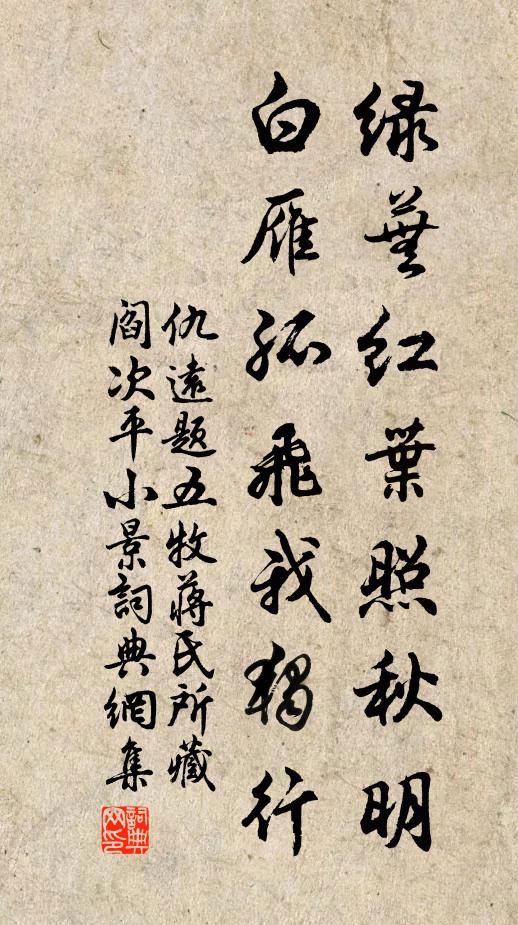 緑蕪紅葉照秋明
白雁孤飛我獨行
仇遠題五牧蔣氏所藏
閻次平小景詞典網集
詞典网印